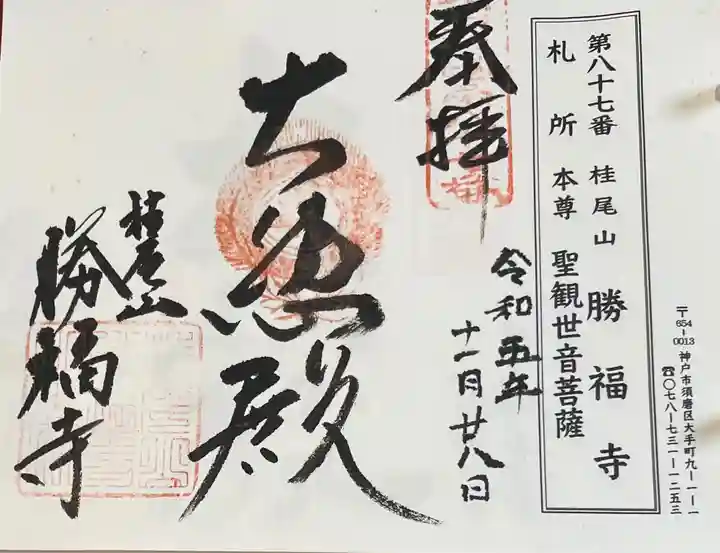 第八十七番 桂尾山 勝福寺
札所本尊 聖観世音菩薩
〒654-0013 神戸市須磨区大手町九ー一ー一
☎〇七八ー七三一ー一二五三
奉拝
令和五年
十一月廿八日
大悲殿
桂尾山
勝福寺